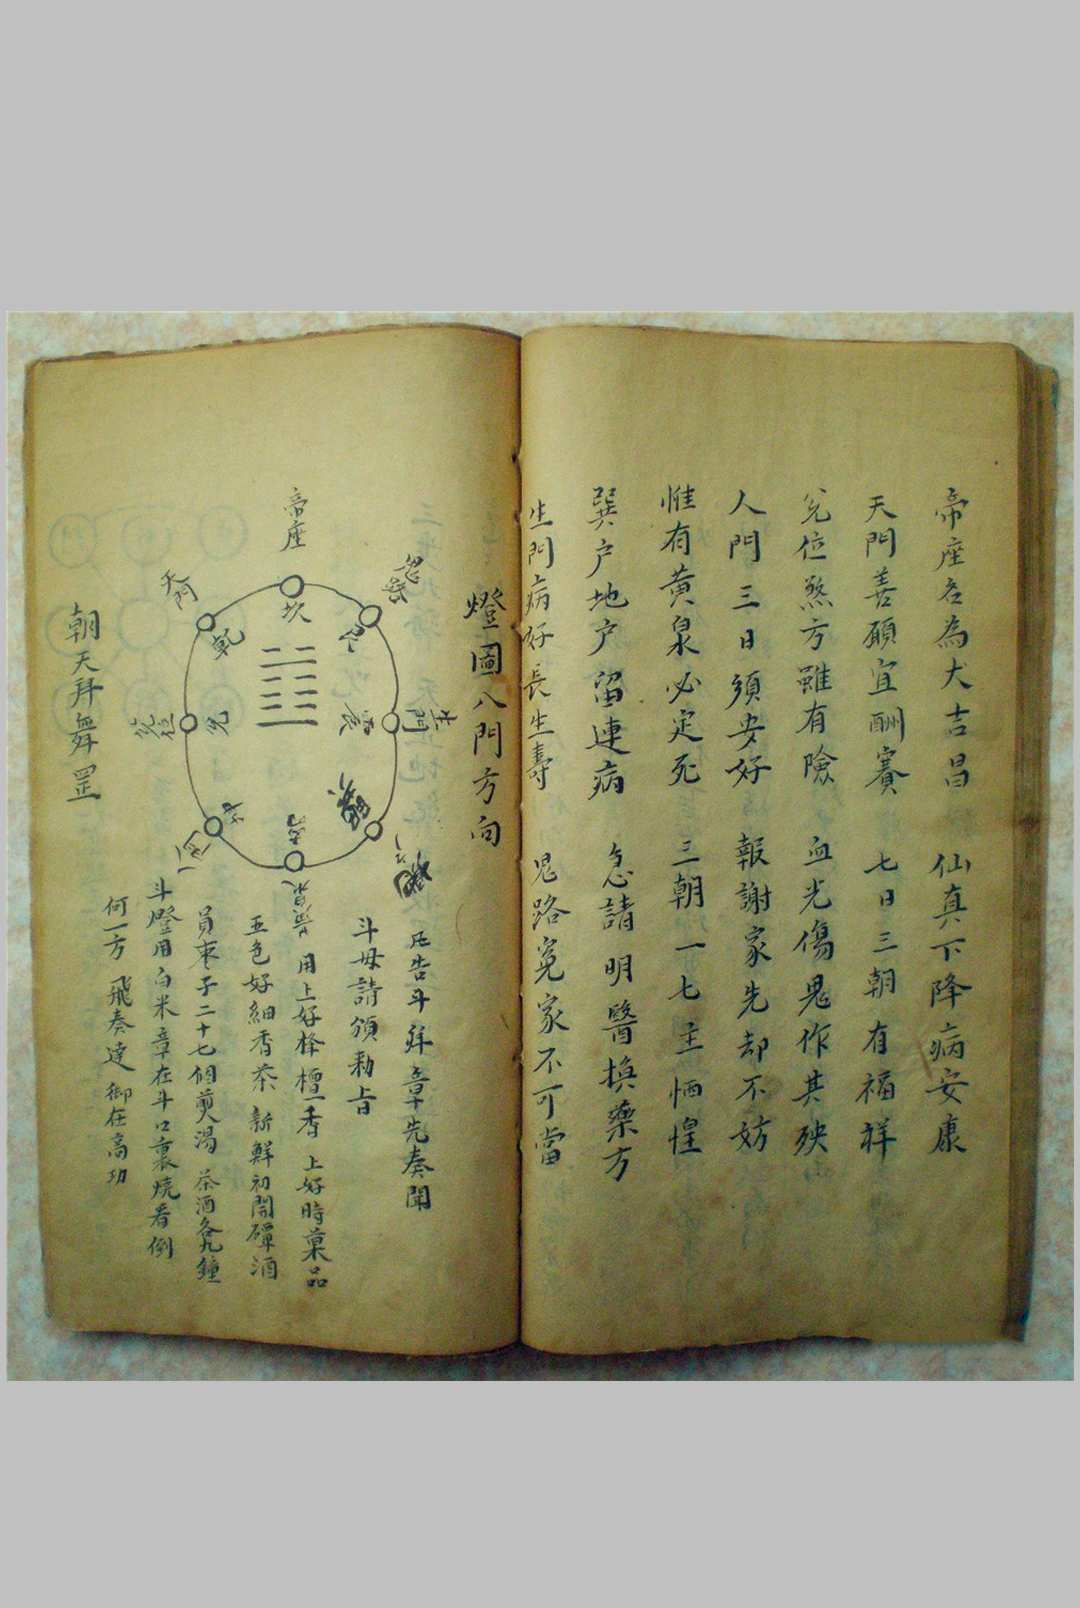 帝座名為大吉昌　仙真下降病安康
天門善願宜酬賽　七日三朝有福祥
兌位煞方雖有險　血光傷鬼作其殃
人門三日須安好　報謝家先却不妨
惟有黃泉必定死　三朝一七主恓惶
巽户地户留連病　急請明醫換藥方
生門病好長生壽　鬼路冤家不可當
燈圖八門方向
帝座
鬼路
天門
坎
艮
乾
生門
震
兌位
兌
坤
人門
離
黃泉
凡告斗拜章先奏聞
斗母請頒勅旨
用上好檀香　上好時菓品
五色好細香茶　新鮮初開礶酒
員棗子二十七個煎湯　茶酒各九鐘
斗燈用白米章在斗口裏燒看例
何一方　飛奏達　御在高功
朝天拜舞罡